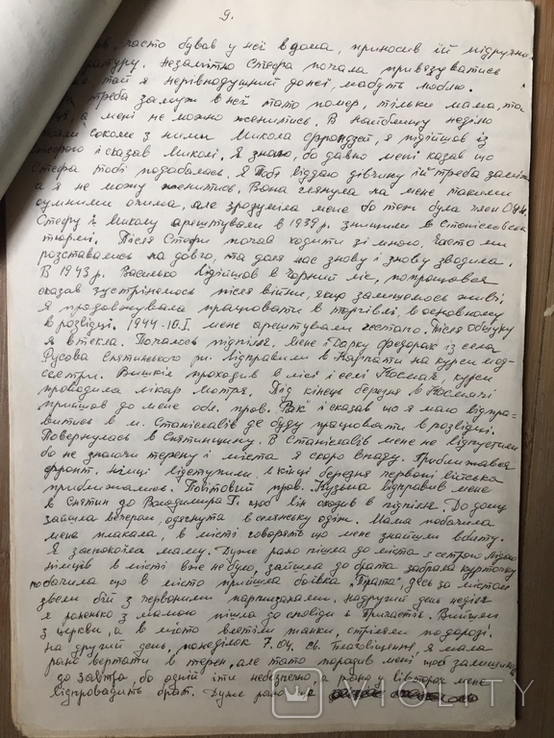 9.
часто бував у неї в дома, приносив їй підручни
літературу. Незамітно Стефа почала привязуватись
тай я нерівнодушний до неї, мабуть люблю.
треба замуж в неї тато помер, тільки мама, та
а мені не можно женитись. В найближчу неділю
з ними Микола я підійшов із
Стефою і сказав Миколі. Я знаю, бо давно мені казав що
Стефа тобі подобалась. Я тобі віддаю дівчину їй треба заміж
а я не можу женитись. Вона глянула на мене такими
сумними очима, але зрозуміла мене бо теж була член ОУН.
Стефу і Миколу арештували в 1939 р. знищили в Станіславській
тюрмі. Після Стефи почав ходити зі мною, часто ми
розставались на довго, та доля нас знову і знову зводила.
В 1943 р. Василько відійшов в Чорний ліс, попрощався
сказав зустрінемось після війни, якщо залишимось живі,
Я продовжувала працювати в торгівлі, в основному
в розвідці. 1944-10.I. мене арештували гестапо. Після обшуку
я втекла. Попалась підпілля. Мене і Дарку Федорак із села
Русова Снятинського р-н. відправили в Карпати на курси мед-
сестри. Вишкіл проходив в лісі і селі Космач, курси
проводила лікар Мотря. Під кінець березня в Космачі
прийшов до мене обл. пров. і сказав що я маю відпра-
витись в м. Станіславів де буду працювати в розвідці.
Повернулась в Снятинщину. В Станіславів мене не відпустили
бо не знаючи терену і міста я скоро впаду. Приближався
фронт. Німці відступили. в кінці березня червоні війська
приближались. Повітовий пров. Кузьма відправив мене
в Снятин до Володимира Г. щоб він сходив в підпілля. До дому
зайшла вечером, одягнута в селянську одіж. Мама побачила
мене плакала, в місті говорять що мене знайшли вбиту.
Я заспокоїла маму. Дуже рано пішла до міста з сестрою
німців в місті вже не було, зайшла до брата забрала куртонку
побачила що в місто прийшла боївка десь за містом
звели бій з червоними партизанами. На другий день неділя
я раненько з мамою пішла до сповіди і Причастія. Вийшли
з церкви, а в місто влетіли танки, стріляли по дорозі.
На другий день, понеділок 7.04. св. Благовіщення, я мала
рано вертати в терен, але тато порадив мені щоб залишилась
до завтра, бо одній іти небезпечно, а рано у вівторок мене
відпровадить брат. Дуже рано на
VIOLITY